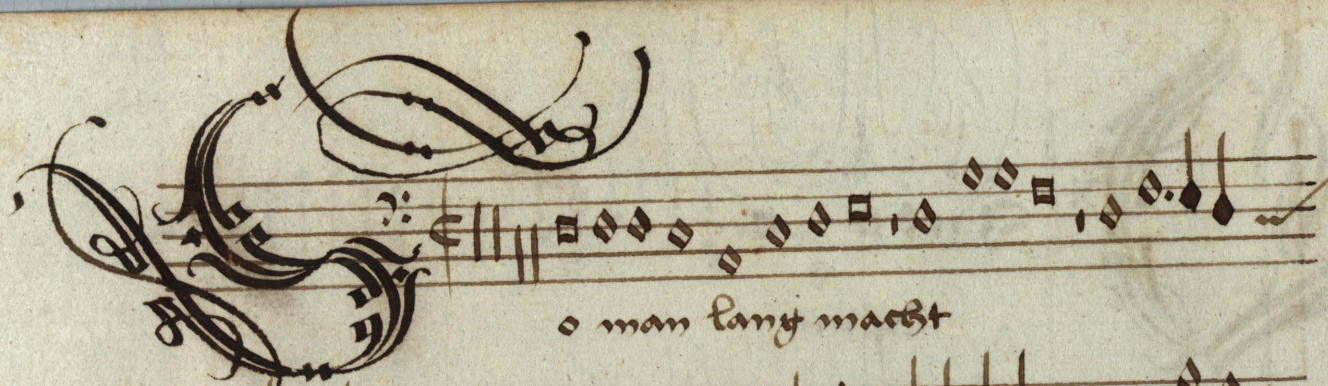 So man lang macht